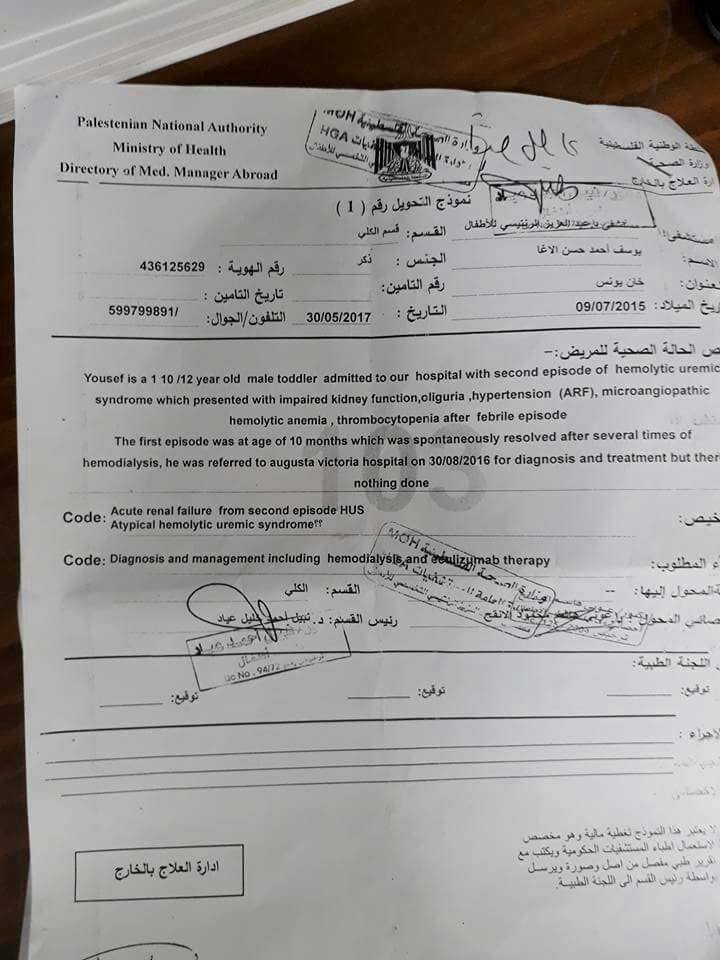 Palestenian National Authority
Ministry of Health
Directory of Med. Manager Abroad
الوطنية الفلسطينية
وزارة الصحة
العلاج بالخارج
MOH
HGA
نموذج التحويل رقم ( 1 )
د.عبد العزيز الرنتيسي للأطفال القسم: قسم الكلى
يوسف أحمد حسن الاغا الجنس : ذكر رقم الهوية : 436125629
خان يونس رقم التامين: تاريخ التامين :
الميلاد: 09/07/2015 التاريخ : 30/05/2017 التلفون/الجوال: 599799891/
الحالة الصحية للمريض:–
Yousef is a 1 10 /12 year old male toddler admitted to our hospital with second episode of hemolytic uremic
syndrome which presented with impaired kidney function,oliguria ,hypertension (ARF), microangiopathic
hemolytic anemia , thrombocytopenia after febrile episode
The first episode was at age of 10 months which was spontaneously resolved after several times of
hemodialysis, he was referred to augusta victoria hospital on 30/08/2016 for diagnosis and treatment but ther
nothing done
103
Code: Acute renal failure from second episode HUS
Atypical hemolytic uremic syndrome؟؟
Code: Diagnosis and management including hemodialysis and eculizumab therapy
المطلوب:
المحول إليها: -- القسم: الكلي
المحول : محمود الانقح رئيس القسم: د. نبيل احمد خليل عياد
MOH
وزارة الصحة الفلسطينية
HGA
أطفال
اللجنة الطبية:
توقيع: توقيع: توقيع:
الاجراء :
لا يعتبر هذا النموذج تغطية مالية وهو مخصص
لاستعمال اطباء المستشفيات الحكومية ويكتب مع
تقرير طبي مفصل من اصل وصورة ويرسل
بواسطة رئيس القسم الى اللجنة الطبيـة.
ادارة العلاج بالخارج